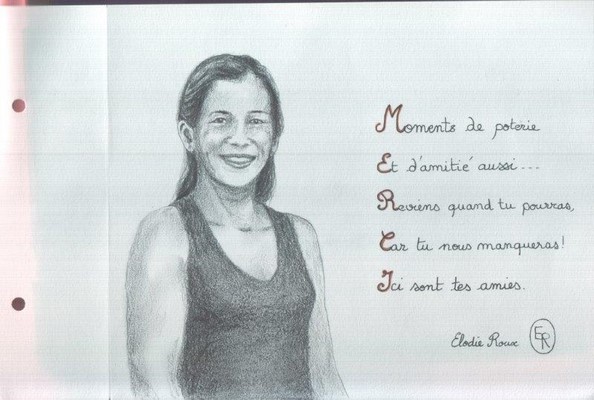 Moments de poterie
Et d'amitié aussi...
Reviens quand tu pourras,
Car tu nous manqueras!
Ici sont tes amies.
Elodie Roux
ER